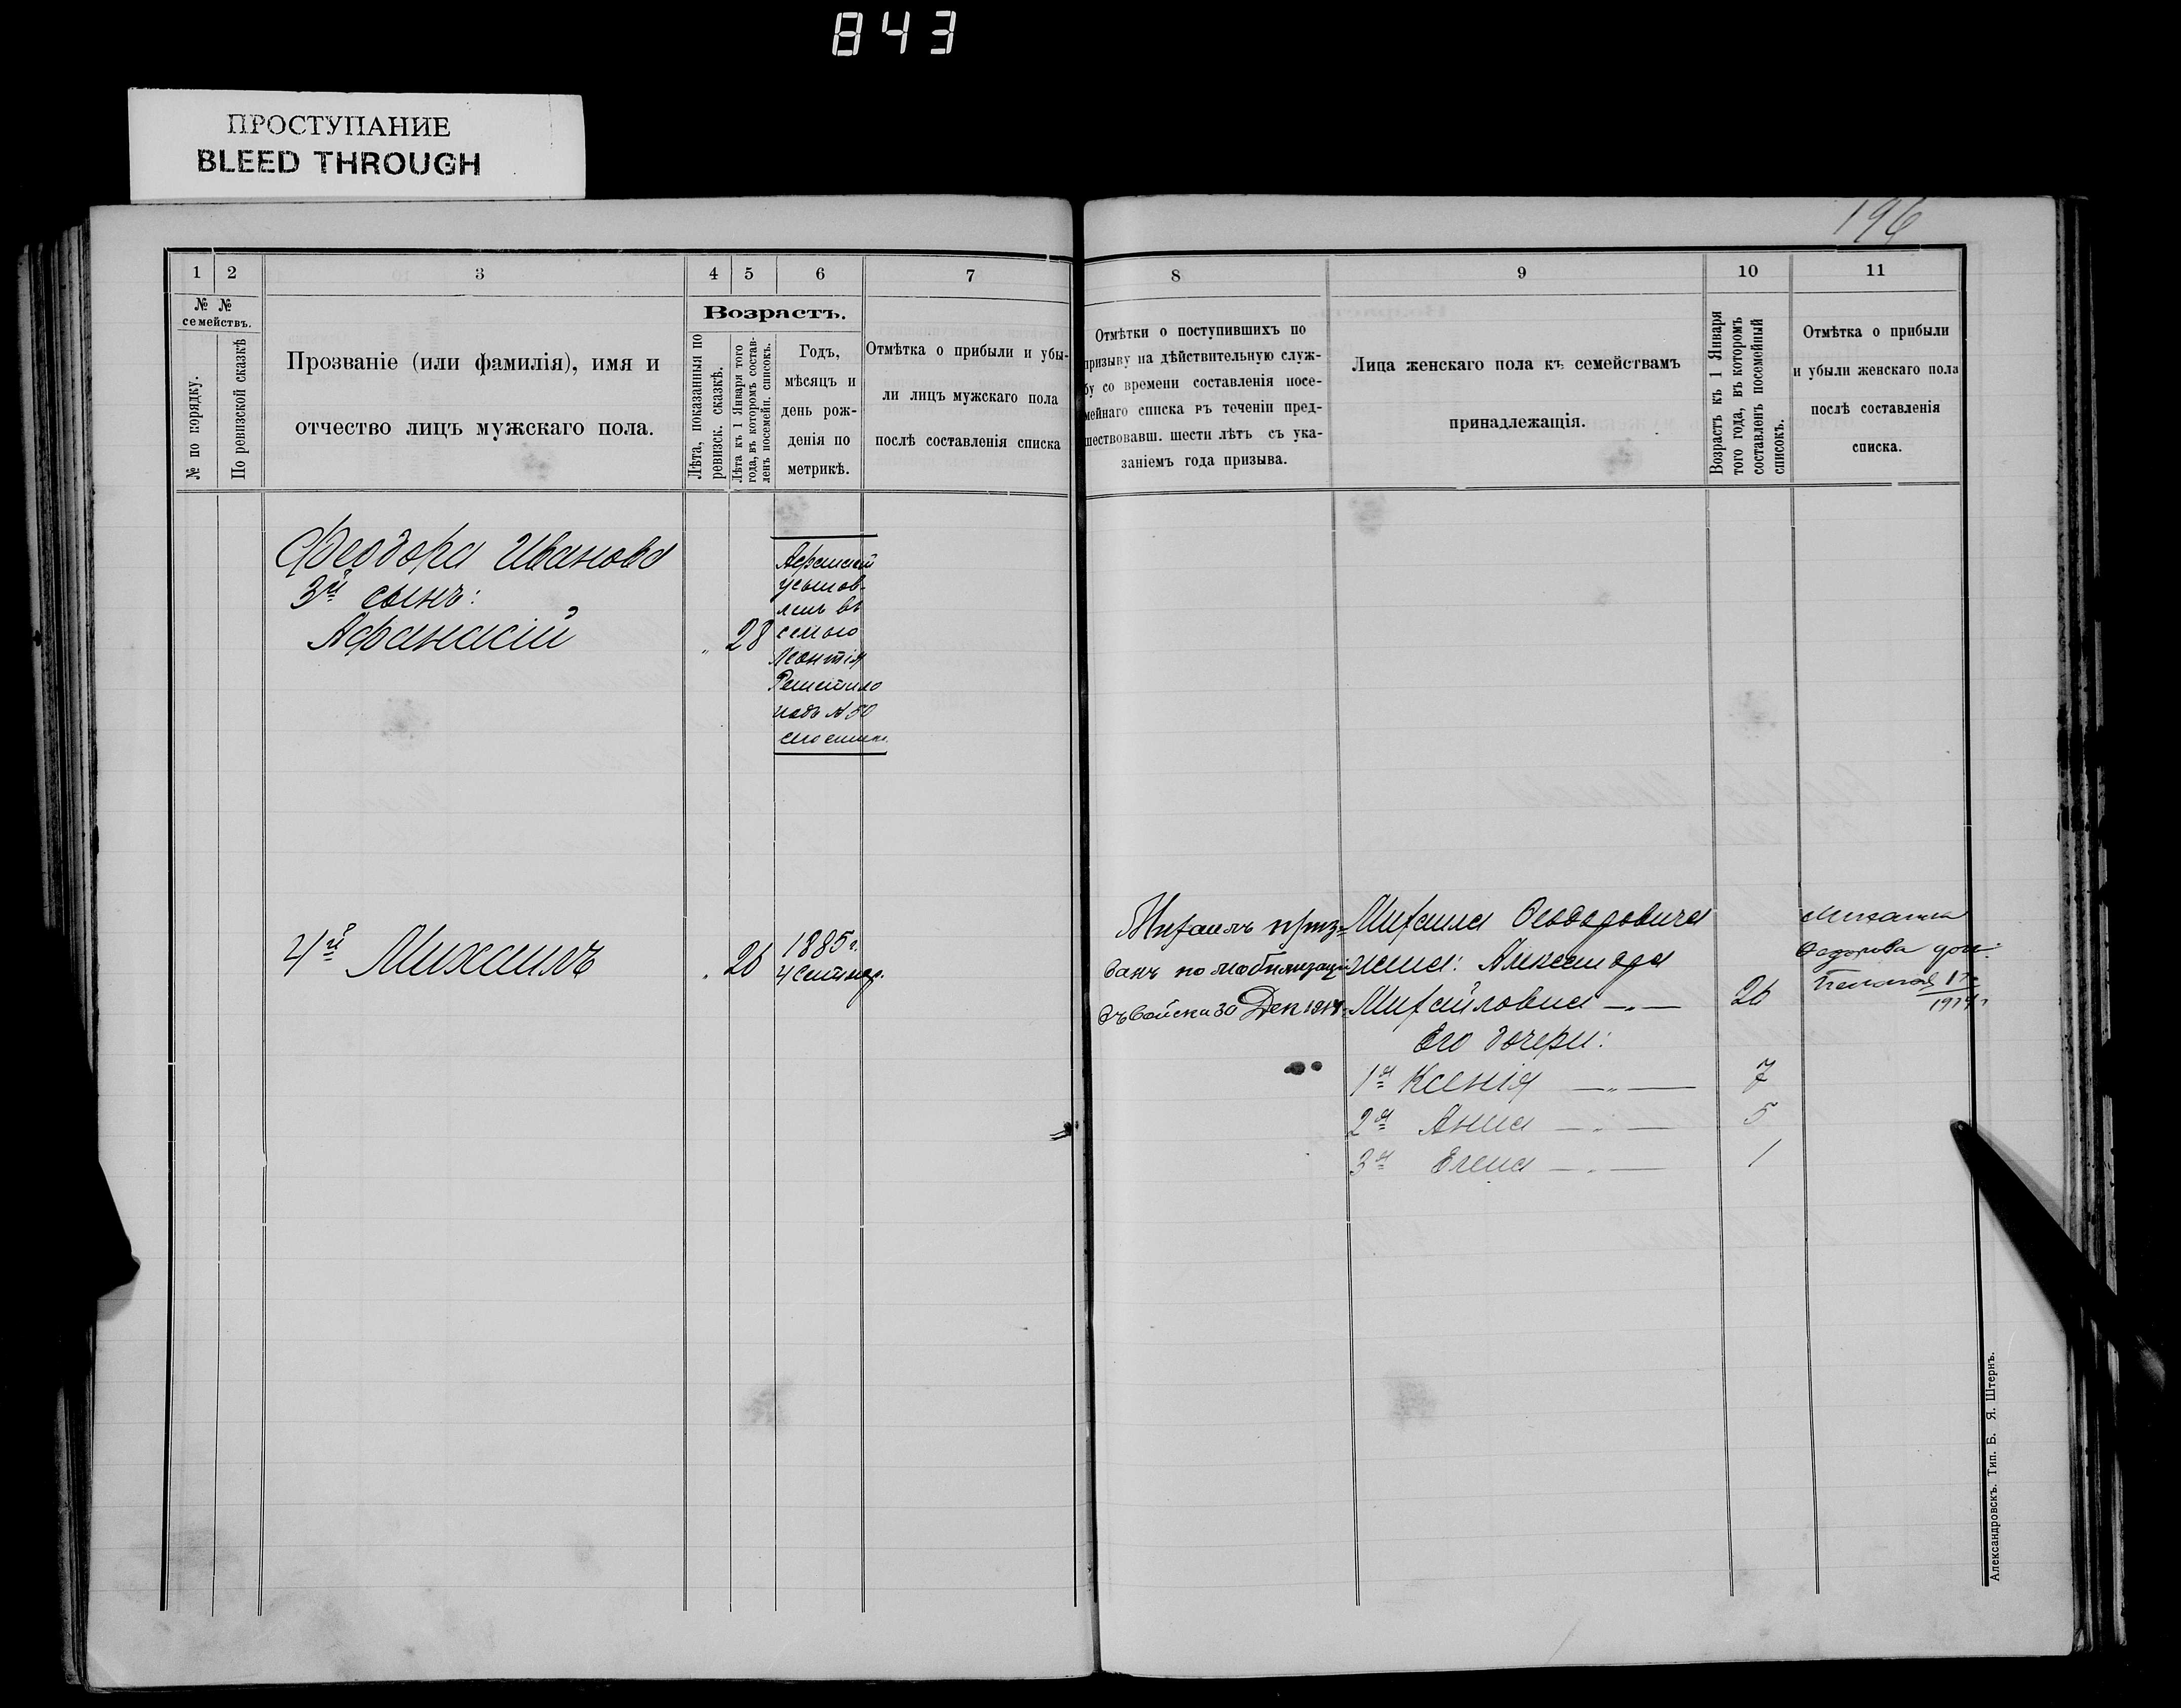 843
ПРОСТУПАНИЕ
BLEED THROUGH
196
1 2 3 4 5 6 7
№ №
семействъ.
№ по порядку.
По ревизской сказкѣ
Прозваніе (или фамилія), имя и
отчество лицъ мужскаго пола.
Возрастъ.
Лѣта, показанныя по
ревизск. сказкѣ.
Лѣта къ 1 Января того
года, въ которомъ состав-
ленъ посемейн. списокъ.
Годъ,
мѣсяцъ и
день рож-
денія по
метрикѣ.
Отмѣтка о прибыли и убы-
ли лицъ мужскаго пола
послѣ составленія списка
Феодора Иванова
3й сынъ:
Афанасій 28
Афанасій
усынов-
ленъ въ
семью
Леонтія
Решетило
подъ № 50
4й Михаилъ 26
1885 г.
4 Сентяб.
8 9 10 11
Отмѣтки о поступившихъ по
призыву на дѣйствительную служ-
бу со времени составленія посе-
мейнаго списка въ теченіи пред-
шествовавш. шести лѣтъ съ ука-
заніемъ года призыва.
Лица женскаго пола къ семействамъ
принадлежащія.
Возрастъ къ 1 Января
того года, въ которомъ
составленъ посемейный
списокъ.
Отмѣтка о прибыли
и убыли женскаго пола
послѣ составленія
списка.
Михаилъ приз-
ванъ по мобилизаціи
въ войска 30 Дек 1914
Михаила Феодоровича
жена: Александра
Михайловна —"— 26
Его дочери:
1я Ксенія —"— 7
2я Анна —"— 5
3я Елена —"— 1
Михаила
Федорова доч:
Пелагея
1914 г
Александровскъ. Тип. Б. Я. Штернъ.